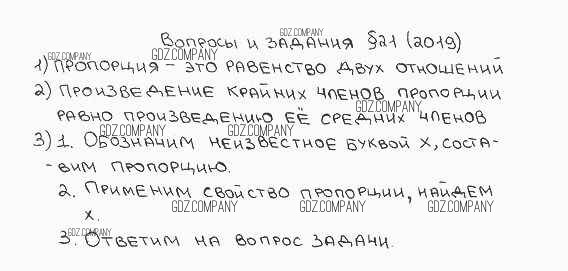 GDZ.COMPANY
Вопросы и задания §21 (2019)
GDZ.COMPANY GDZ.COMPANY
1) Пропорция – это равенство двух отношений
2) Произведение крайних членов пропорции
GDZ.COMPANY
равно произведению её средних членов
GDZ.COMPANY GDZ.COMPANY
3) 1. Обозначим неизвестное буквой х, соста-
- вим пропорцию.
2. Применим свойство пропорции, найдем
GDZ.COMPANY GDZ.COMPANY GDZ.COMPANY
х.
GDZ.COMPANY
3. Ответим на вопрос задачи.